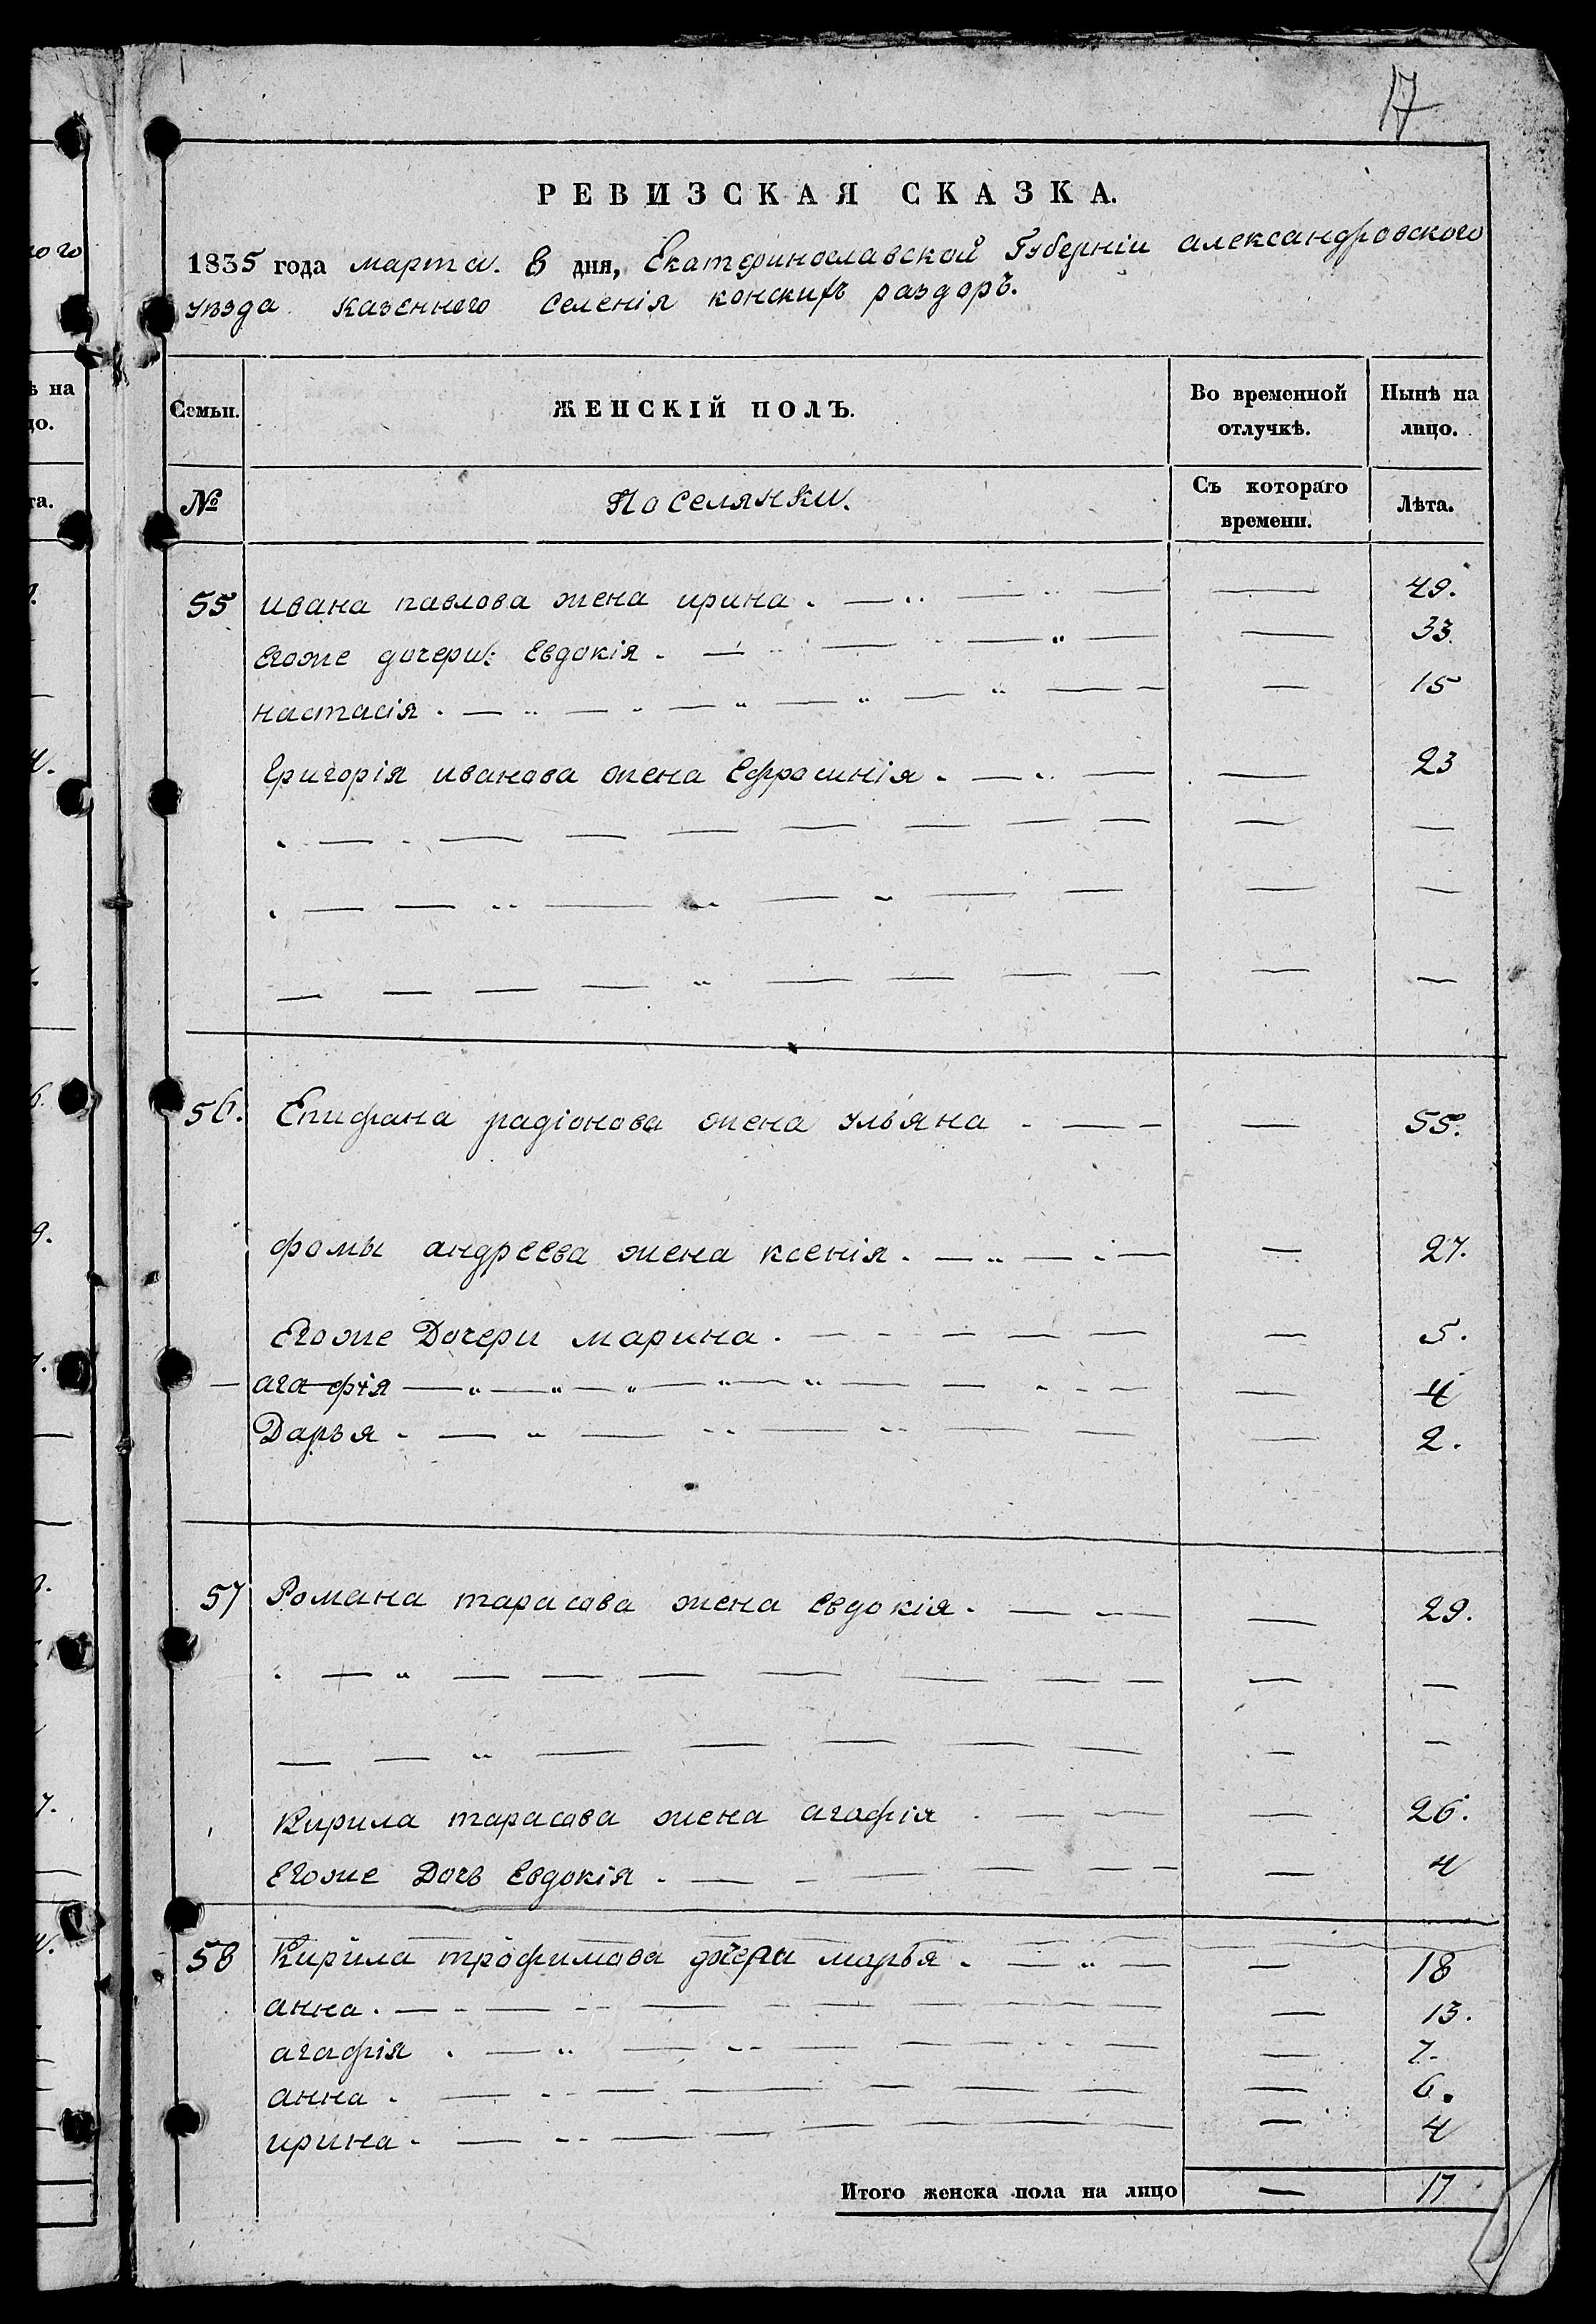 17
РЕВИЗСКАЯ СКАЗКА.
1835 года марта. 8 дня, Екатеринославской Губерніи александровского
уѣзда казенного селенія конскихъ раздоръ.
Семьи. ЖЕНСКІЙ ПОЛЪ. Во временной отлучкѣ. Нынѣ на лицо.
№ Поселянки. Съ котораго времени. Лѣта.
55 ивана павлова жена ирина. — — — — 49.
Егоже дочери: Евдокія. — — — — — 33.
настасія. — — — — — — — — 15
Григорія иванова жена Ефросинія. — — — 23
56. Епифана радіонова жена ульяна — — — 55.
фомы андреева жена ксенія. — — — — 27.
Егоже Дочери марина. — — — — — — 5.
агафія — — — — — — — — — 4
Дарья. — — — — — — — 2.
57 Романа тарасова жена евдокія. — — — 29.
Кирила тарасова жена агафія — — — 26.
Егоже Дочь Евдокія. — — — — — — 4
58 Кирила трофимова дочери марья. — — — 18
анна. — — — — — — — 13.
агафія. — — — — — — — 7.
анна. — — — — — — — 6.
ирина. — — — — — — 4
Итого женска пола на лицо — 17